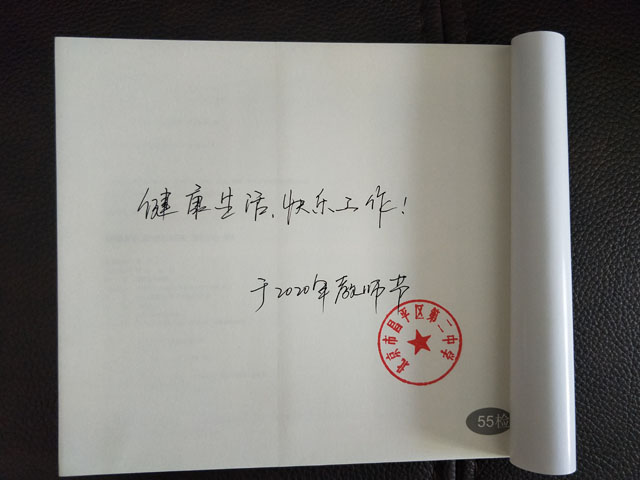 健康生活、快乐工作!
于2020年教师节
北京市昌平区第二中学
55检